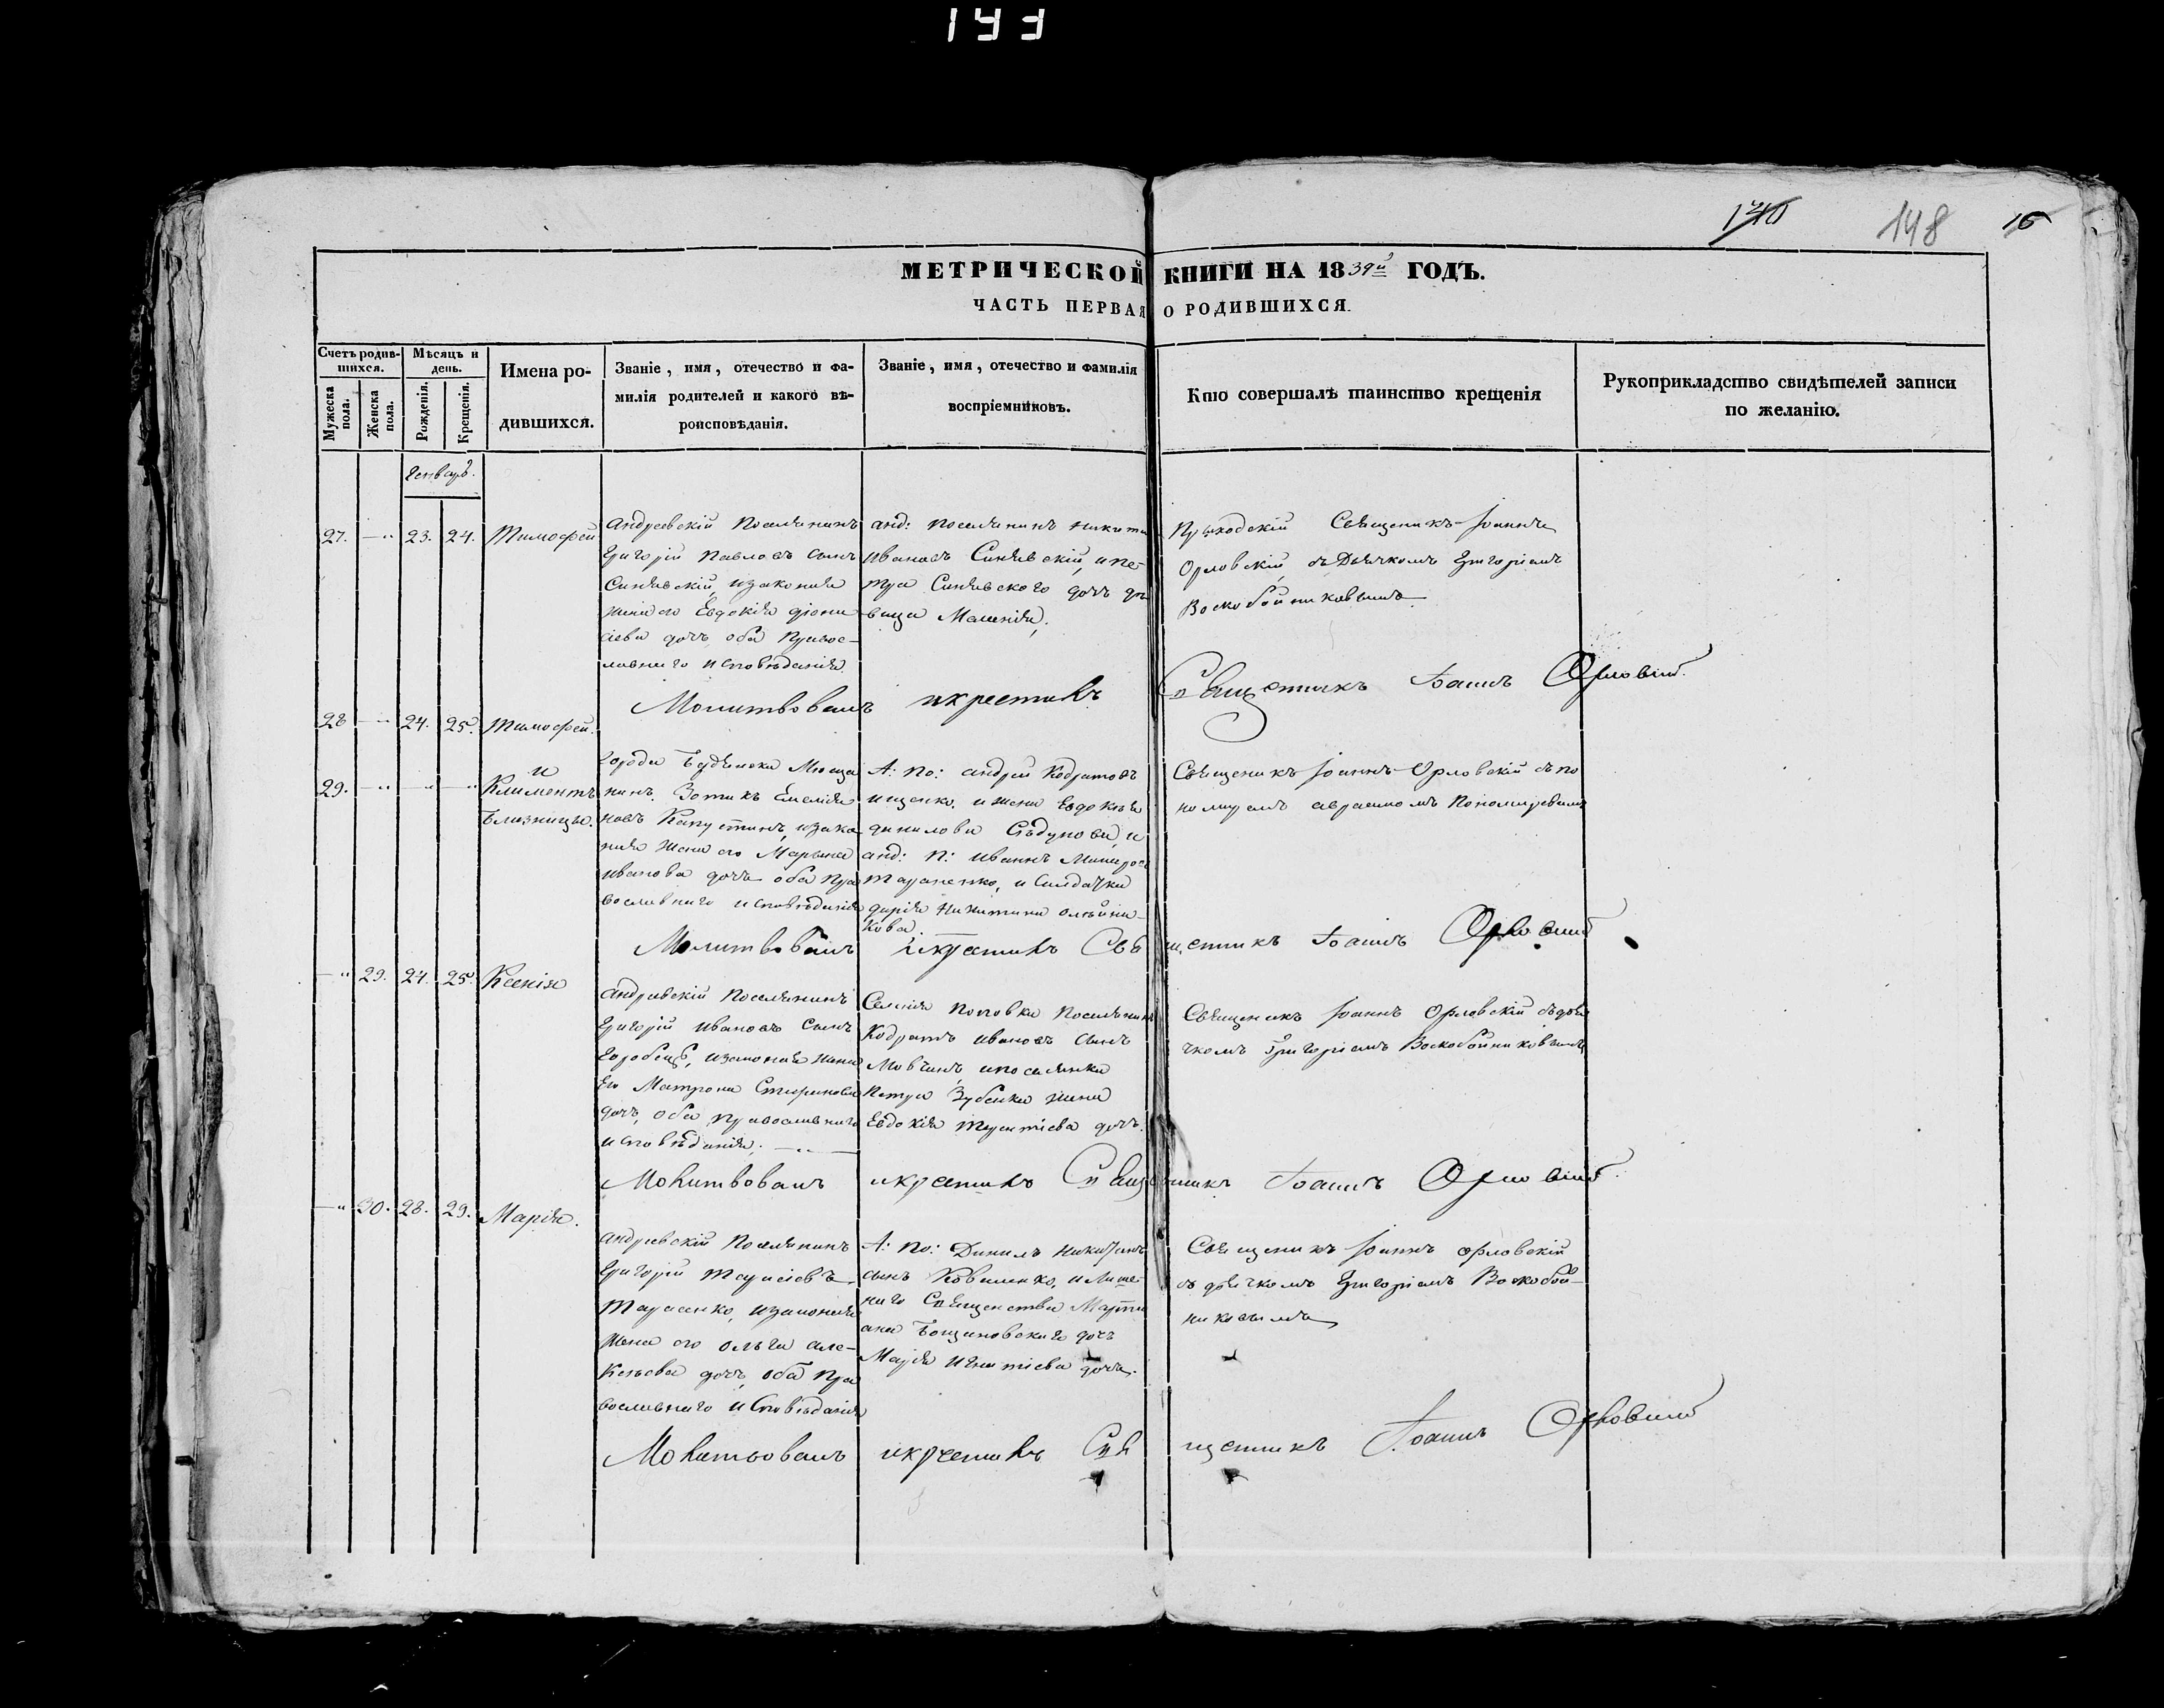 193
140
148
16
МЕТРИЧЕСКОЙ КНИГИ НА 1839й ГОДЪ.
ЧАСТЬ ПЕРВАЯ О РОДИВШИХСЯ.
Счетъ родив-
шихся.
Мужеска
пола.
Женска
пола.
Мѣсяцъ и
день.
Рожденія.
Крещенія.
Имена ро-
дившихся.
Званіе, имя, отечество и фа-
милія родителей и какого вѣ-
роисповѣданія.
Званіе, имя, отечество и фамилія
воспріемниковъ.
Кто совершалъ таинство крещенія
Рукоприкладство свидѣтелей записи
по желанію.
Генварь.
27. — " 23. 24. Тимофей
Андреевскій Поселянинъ
Григорій Павловъ сынъ
Синявскій, изаконная
жена его Евдокія Діони
сіева дочъ оба Право-
лавнаго исповѣданія
анд: поселянинъ Никита
Ивановъ Синявскій, и Пе-
тра Синявского дочъ дѣ
вица Меланія,
Приходскій Священикъ Іоаннъ
Орловскій, съ Дьячкомъ Григоріемъ
Воскобойниковымъ
Молитвовалъ икрестилъ Священникъ Іоаннъ Орловскій.
28 — " 24. 25. Тимофей.
29. — " — " — " и
Климентъ
Близницы.
города Мѣща
нинъ. Зотикъ Емелия
новъ Капустинъ, изако
ная жена его Марына
Иванова дочъ оба Пра
вославнаго исповѣданія
А: По: Андрей Кодратовъ
Ищенко, и жена Евдокія
Данилова Сѣдунова, и
анд: п: Иваннъ
Тараненко, и Салдатка
Дарія Никитина Олѣйни-
кова.
Священикъ Іоаннъ Орловскій съ по
номаремъ Авраамомъ Пономаревымъ
Молитвовалъ икрестилъ Священникъ Іоаннъ Орловскій
— " 29. 24. 25. Ксенія
Андреевскій Поселянинъ
Григорій Ивановъ Сынъ
Горобецъ, изаконная жена
Его Матрона
дочъ, оба Православнаго
исповѣданія. — " —
Селенія Поповки Поселянинъ
Кодратъ Ивановъ сынъ
Мовчанъ, ипоселянка
Петра Зубенка жена
Евдокія Терентіева дочъ.
Священикъ Іоаннъ Орловскій съ дья
чкомъ Григоріемъ Воскобойниковымъ
Молитвовалъ икрестилъ Священникъ Іоаннъ Орловскій.
— " 30. 28. 29. Марія.
Андреевскій Поселянинъ
Григорій Тарасіевъ
Тарасенко, изаконная
жена его Ольга Але-
ксѣева дочъ, оба Пра
вославнаго исповѣданія
А: По: Данилъ Никитинъ
сынъ Коваленко, и Лише-
наго Священства Марти
ана дочъ
Марія Игнатіева дочъ.
Священикъ Іоаннъ Орловскій
съ дьячкомъ Григоріемъ Воскобой-
никовымъ
Молитвовалъ икрестилъ Священникъ Іоаннъ Орловскій